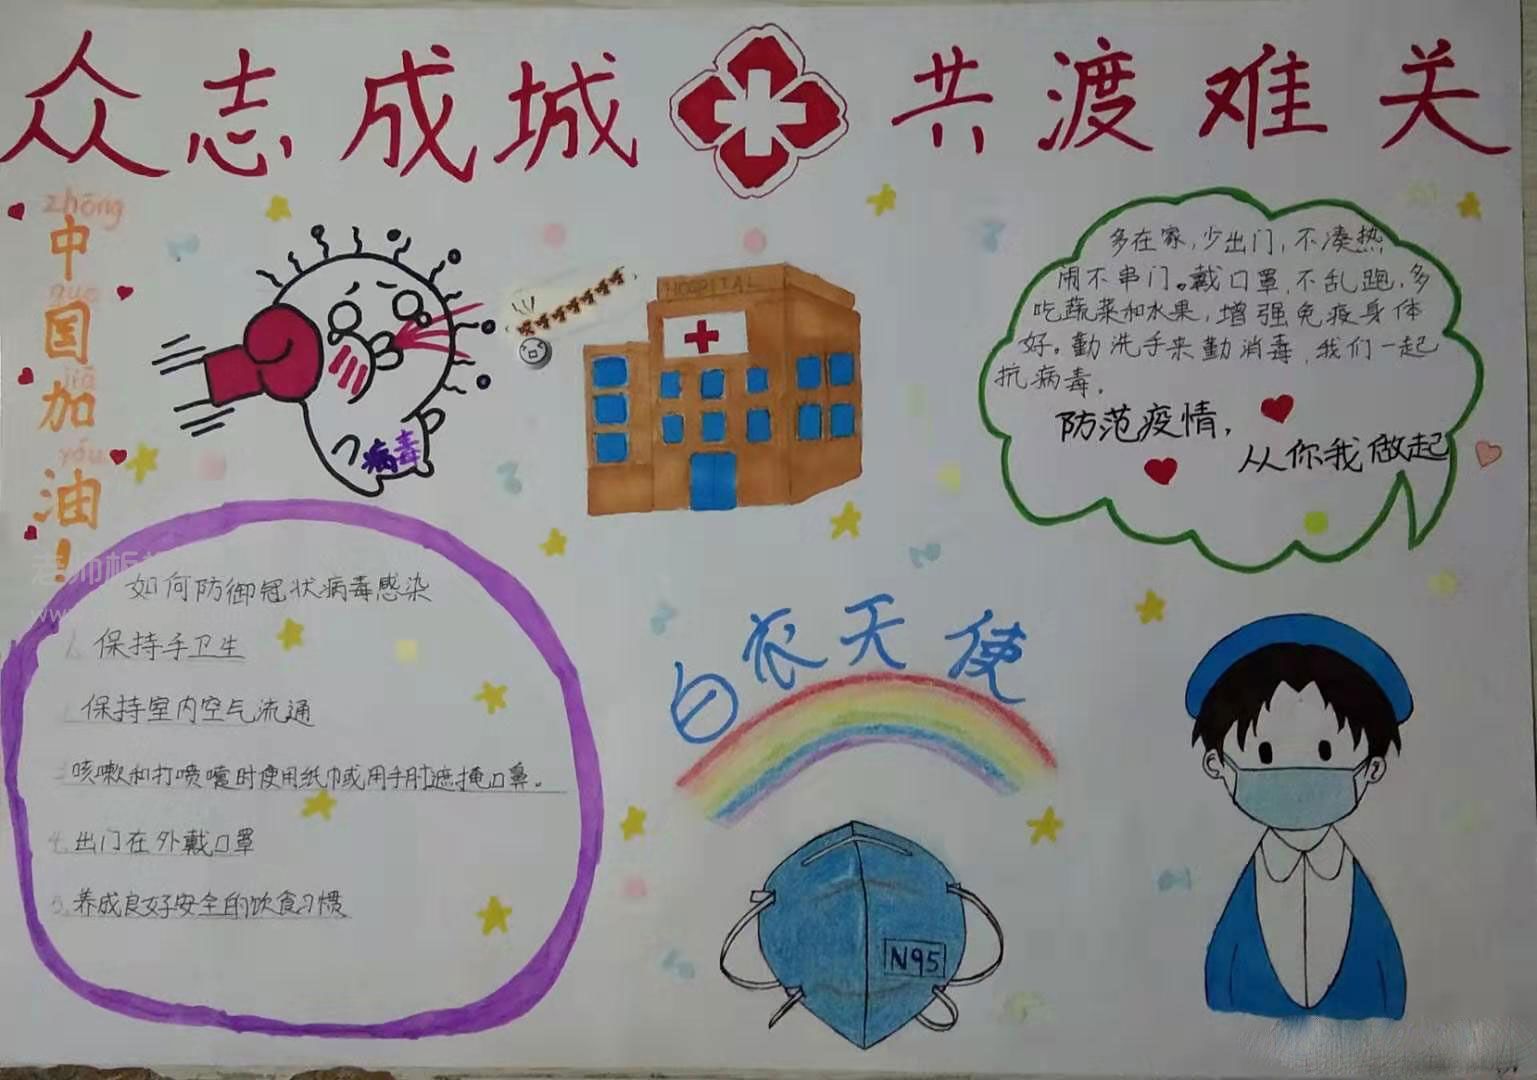 众志成城 共渡难关
zhōng
中
guo
国
jiā
加
yóu
油
!
病毒
HOSPITAL
多在家,少出门,不凑热
闹不串门。戴口罩,不乱跑,多
吃蔬菜和水果,增强免疫身体
好。勤洗手来勤消毒,我们一起
抗病毒。
防范疫情,
从你我做起
如何防御冠状病毒感染
1.保持手卫生
保持室内空气流通
咳嗽和打喷嚏时使用纸巾或用手肘遮掩口鼻。
4.出门在外戴口罩
5.养成良好安全的饮食习惯
白衣天使
N95